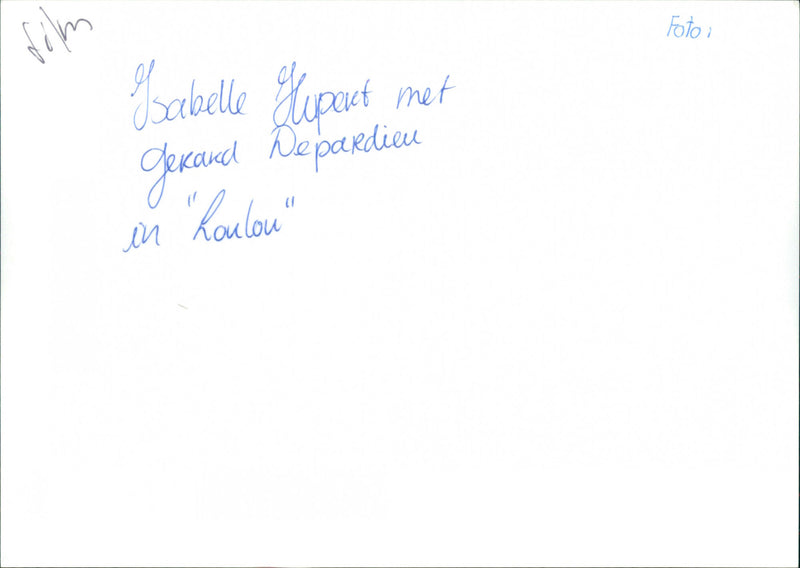 Film
Foto:
Isabelle Hupert met
Gerard Depardieu
in "Loulou"